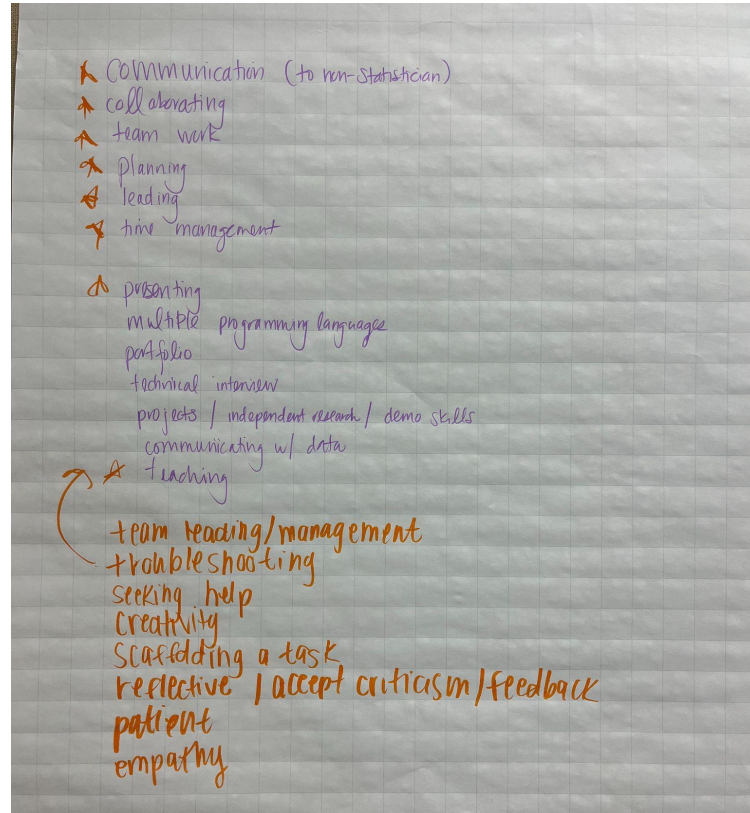 communication (to non-statistician)
collaborating
team work
planning
leading
time management
presenting
multiple programming languages
portfolio
technical interview
projects / independent research / demo skills
communicating w/ data
teaching
team leading/management
troubleshooting
seeking help
creativity
scaffolding a task
reflective / accept criticism/feedback
patient
empathy